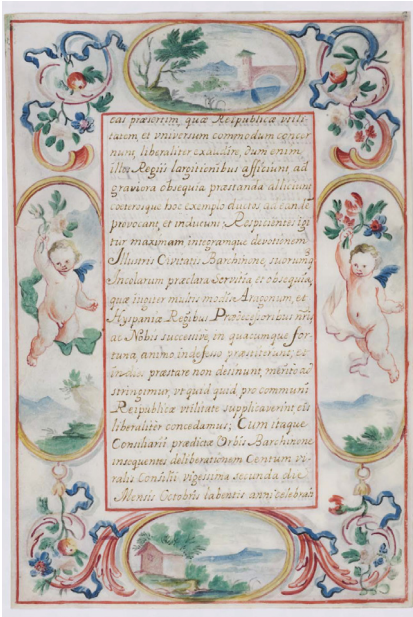 eas præsertim, quæ Reipublicæ utili-
tatem, et universum commodum concer
nunt, liberaliter exaudim, dum enim
illos Regiis largitionibus afficiunt, ad
graviora obsequia præstanda alliciunt
cæterosque hoc exemplo ductos, ad eandē
provocant, et inducunt. Respicientes igi
tur maximam integramque devotionem
Illustris Civitatis Barchinonæ, suorumq
Incolarum præclara servitia, et obsequia,
quæ iugiter multis modis Aragonum, et
Hyspaniæ Regibus Prædecessoribus nr̃is
ac Nobis successive, in quacumque for-
tuna, animo indefesso præstiterunt, et
in dies præstare non desinunt, merito ad
stringimur, ut quid quid pro communi
Reipublicæ utilitate supplicaverint eis
liberaliter concedamus; Cum itaque
Consiliarii prædictæ Urbis Barchinonæ
insequentes deliberationem Centum vi-
ralis Consilii vigesima secunda die
Mensis Octobris labentis anni celebrati